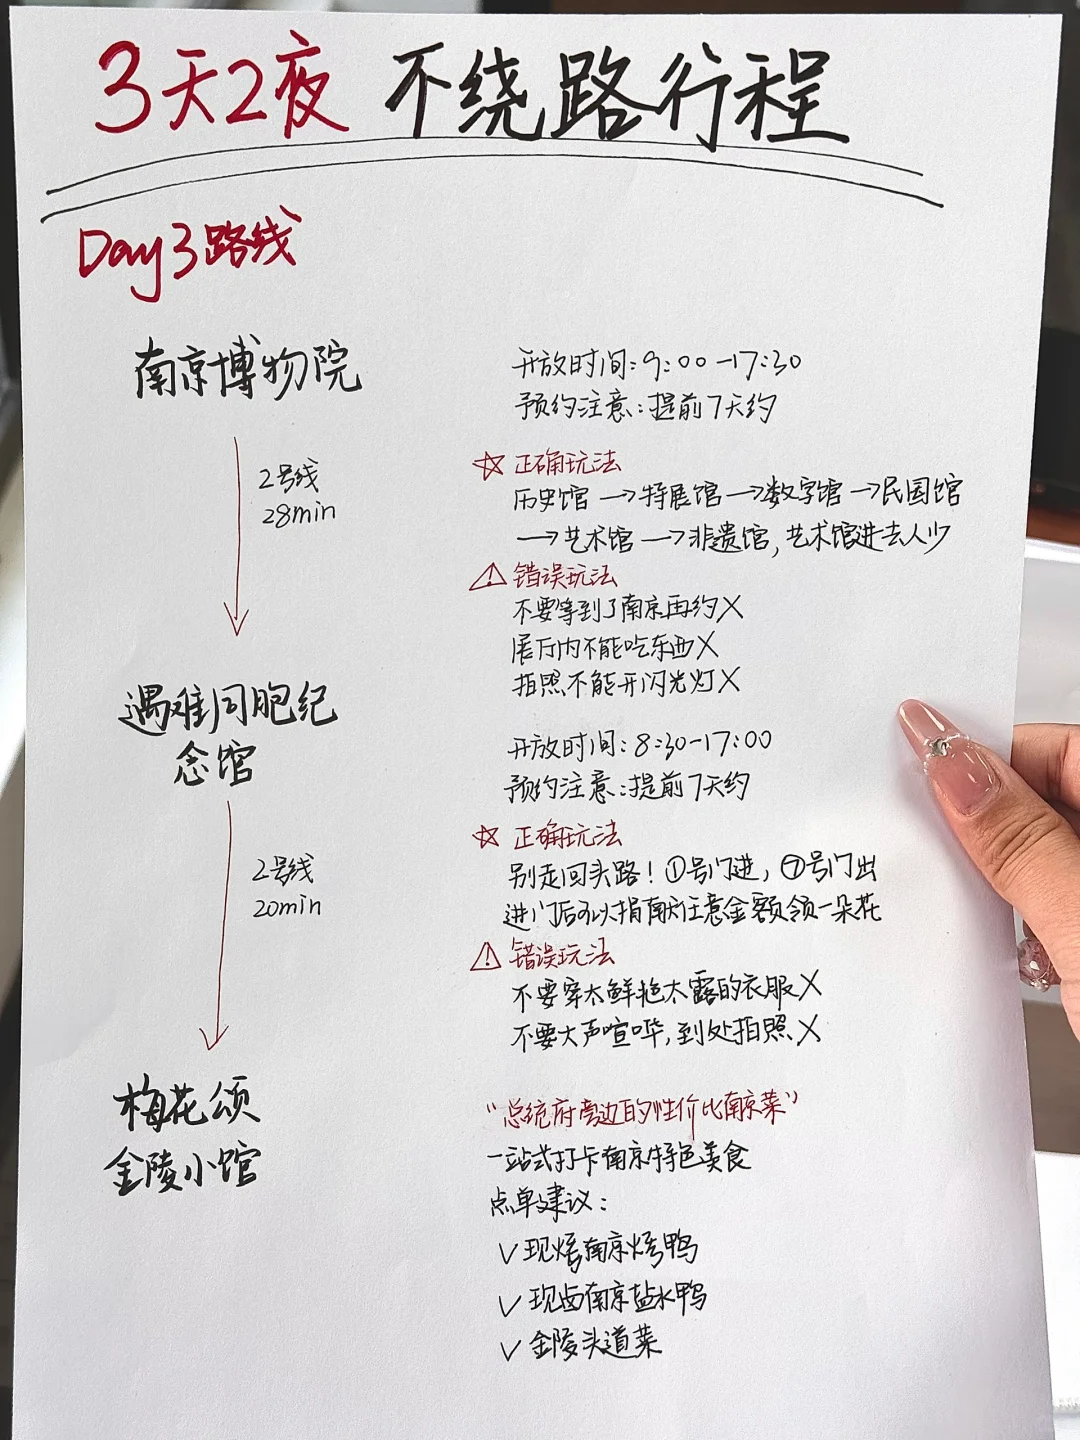 3天2夜 不绕路行程
Day3路线
南京博物院
开放时间:9:00-17:30
预约注意:提前7天约
2号线
28min
☆ 正确玩法
历史馆→特展馆→数字馆→民国馆
→艺术馆→非遗馆,艺术馆进去人少
⚠错误玩法
不要等到了南京再约X
展厅内不能吃东西X
拍照不能开闪光灯X
遇难同胞纪
念馆
开放时间:8:30-17:00
预约注意:提前7天约
2号线
20min
☆ 正确玩法
别走回头路!①号门进,⑦号门出
进门后可以捐献任意金额领一朵花
⚠错误玩法
不要穿太鲜艳太露的衣服X
不要大声喧哗,到处拍照X
梅花颂
金陵小馆
“总统府旁边的性价比南京菜”
一站式打卡南京特色美食
点单建议:
✓现烤南京烤鸭
✓现卤南京盐水鸭
✓金陵头道菜